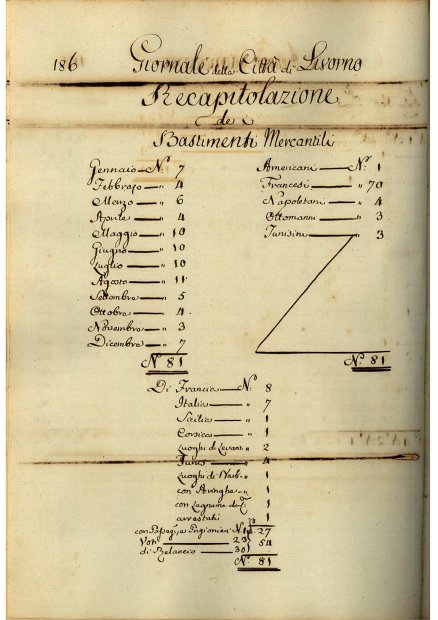 186 Giornale della Città di Livorno
Recapitolazione
de i
Bastimenti Mercantili
Gennaio N.° 7
Febbraio " 4
Marzo " 6
Aprile " 4
Maggio " 10
Giugno " 10
Luglio " 10
Agosto " 11
Settembre " 5
Ottobre " 4
Novembre " 3
Dicembre " 7
N.° 81
Americani N.° 1
Francesi " 70
Napoletani " 4
Ottomanni " 3
Tunisini " 3
N.° 81
Di Francia N.° 8
Italia " 7
Sicilia " 1
Corsica " 1
Luoghi di Levant. " 2
Tunis " 4
Luoghi di 1
con Aringhe " 1
con Legname da 1
arrestati 1
con Passegg. e Prigionieri N.° 1 27
Voti 23 54
di Rilascio 30
N.° 81